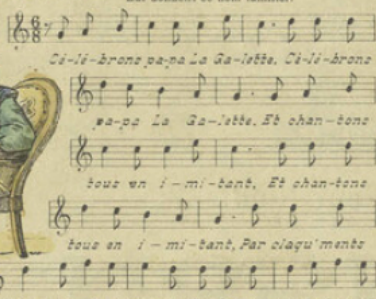 Cé-lé-brons pa-pa La Ga-lette, Cé-lé-brons
pa-pa La Ga-lette, Et chan-tons
tous en i-mi-tant, Et chan-tons
tous en i-mi-tant, Par claqu'ments